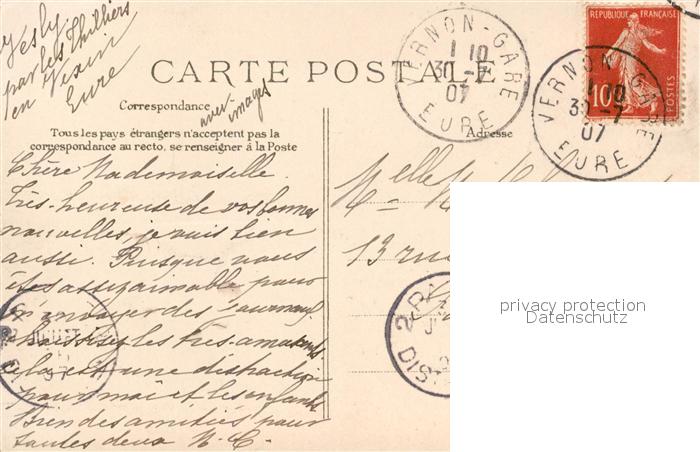 Vesly
par les Thilliers
en Vexin
Eure
CARTE POSTALE
Correspondance
avec images
Tous les pays étrangers n'acceptent pas la
correspondance au recto, se renseigner à la Poste
Adresse
Chère Mademoiselle.
très-heureuse de vos bonnes
nouvelles, je vais bien
aussi. Puisque vous
êtes assez aimable pour
m'envoyer des journaux
choisissez les très-amusants
cela est une distraction
pour moi et les enfants
Bien des amitiés pour
toutes deux N. C.
Melle
13 rue
VERNON-GARE
1 10
30-7
07
EURE
RÉPUBLIQUE FRANÇAISE
POSTES
10
VERNON-GARE
10
30-7
07
EURE
JUILLET
07
2 PA
DIS
privacy protection
Datenschutz